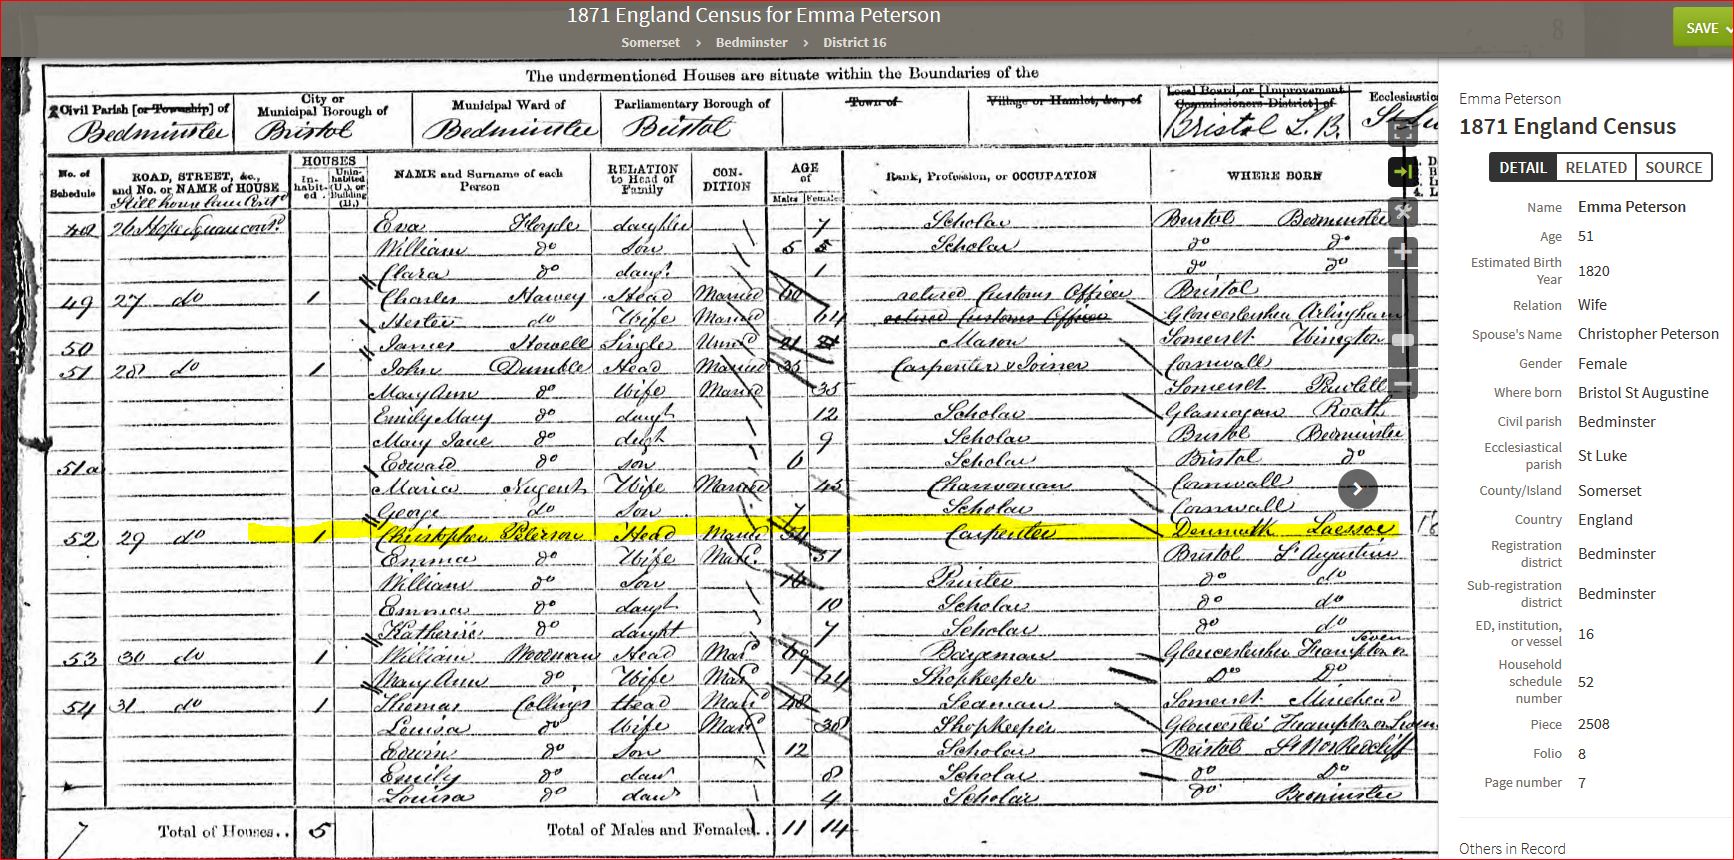 1871 England Census for Emma Peterson
Somerset > Bedminster > District 16
SAVE
The undermentioned Houses are situate within the Boundaries of the
Civil Parish [or Township] of
City or Municipal Borough of
Municipal Ward of
Parliamentary Borough of
Town of
Village or Hamlet, &c., of
Local Board, or [Improvement Commissioners District] of
Ecclesiastic
Bedminster Bristol Bedminster Bristol Bristol L.B. St Lu
No. of Schedule
ROAD, STREET, &c., and No. or NAME of HOUSE
HOUSES
Inhabited
Uninhabited (U.), or Building (B.)
NAME and Surname of each Person
RELATION to Head of Family
CONDITION
AGE of
Males Females
Rank, Profession, or OCCUPATION
WHERE BORN
Eva daughter 7 Scholar Bristol Bedminster
William do Son 5 Scholar do do
Clara do daugr 1 do do
49 27 do 1 Charles Head Married 60 retired Customs Officer Bristol
Hester do Wife Married 64 retired Customs Officer Gloucestershire Arlingham
50 James Howell Single Unmd 21 Mason Somerset
51 28 do 1 John Dumble Head Married 35 Carpenter & Joiner Cornwall
Mary Ann do Wife Married 35 Somerset
Emily Mary do daugh 12 Scholar Glamorgan Roath
Mary Jane do 9 Scholar Bristol Bedminster
51a Edward do son 6 Scholar Bristol do
Maria Nugent Wife Married 45 Charwoman Cornwall
George do Son 7 Scholar Cornwall
52 29 do 1 Christopher Peterson Head Married 54 Carpenter Denmark Laessoe
Emma do Wife Mard 51 Bristol St Augustine
William do Son 16 Printer do do
Emma do daugh 10 Scholar do do
Katherine do daught 7 Scholar do do
53 30 do 1 William Head Mard 69 Bargeman Gloucestershire Frampton on Severn
Mary Ann do Wife Mard 64 Shopkeeper Do Do
54 31 do 1 Thomas Collings Head Mard 48 Seaman Somerset Minehead
Louisa do Wife Mard 38 Shopkeeper Frampton on
Edwin do Son 12 Scholar Bristol Redcliff
Emily do daur 8 Scholar do Do
Louisa do daur 4 Scholar do Bedminster
7 Total of Houses.. 5 Total of Males and Females.. 11 14
Emma Peterson
1871 England Census
DETAIL RELATED SOURCE
Name Emma Peterson
Age 51
Estimated Birth Year 1820
Relation Wife
Spouse's Name Christopher Peterson
Gender Female
Where born Bristol St Augustine
Civil parish Bedminster
Ecclesiastical parish St Luke
County/Island Somerset
Country England
Registration district Bedminster
Sub-registration district Bedminster
ED, institution, or vessel 16
Household schedule number 52
Piece 2508
Folio 8
Page number 7
Others in Record